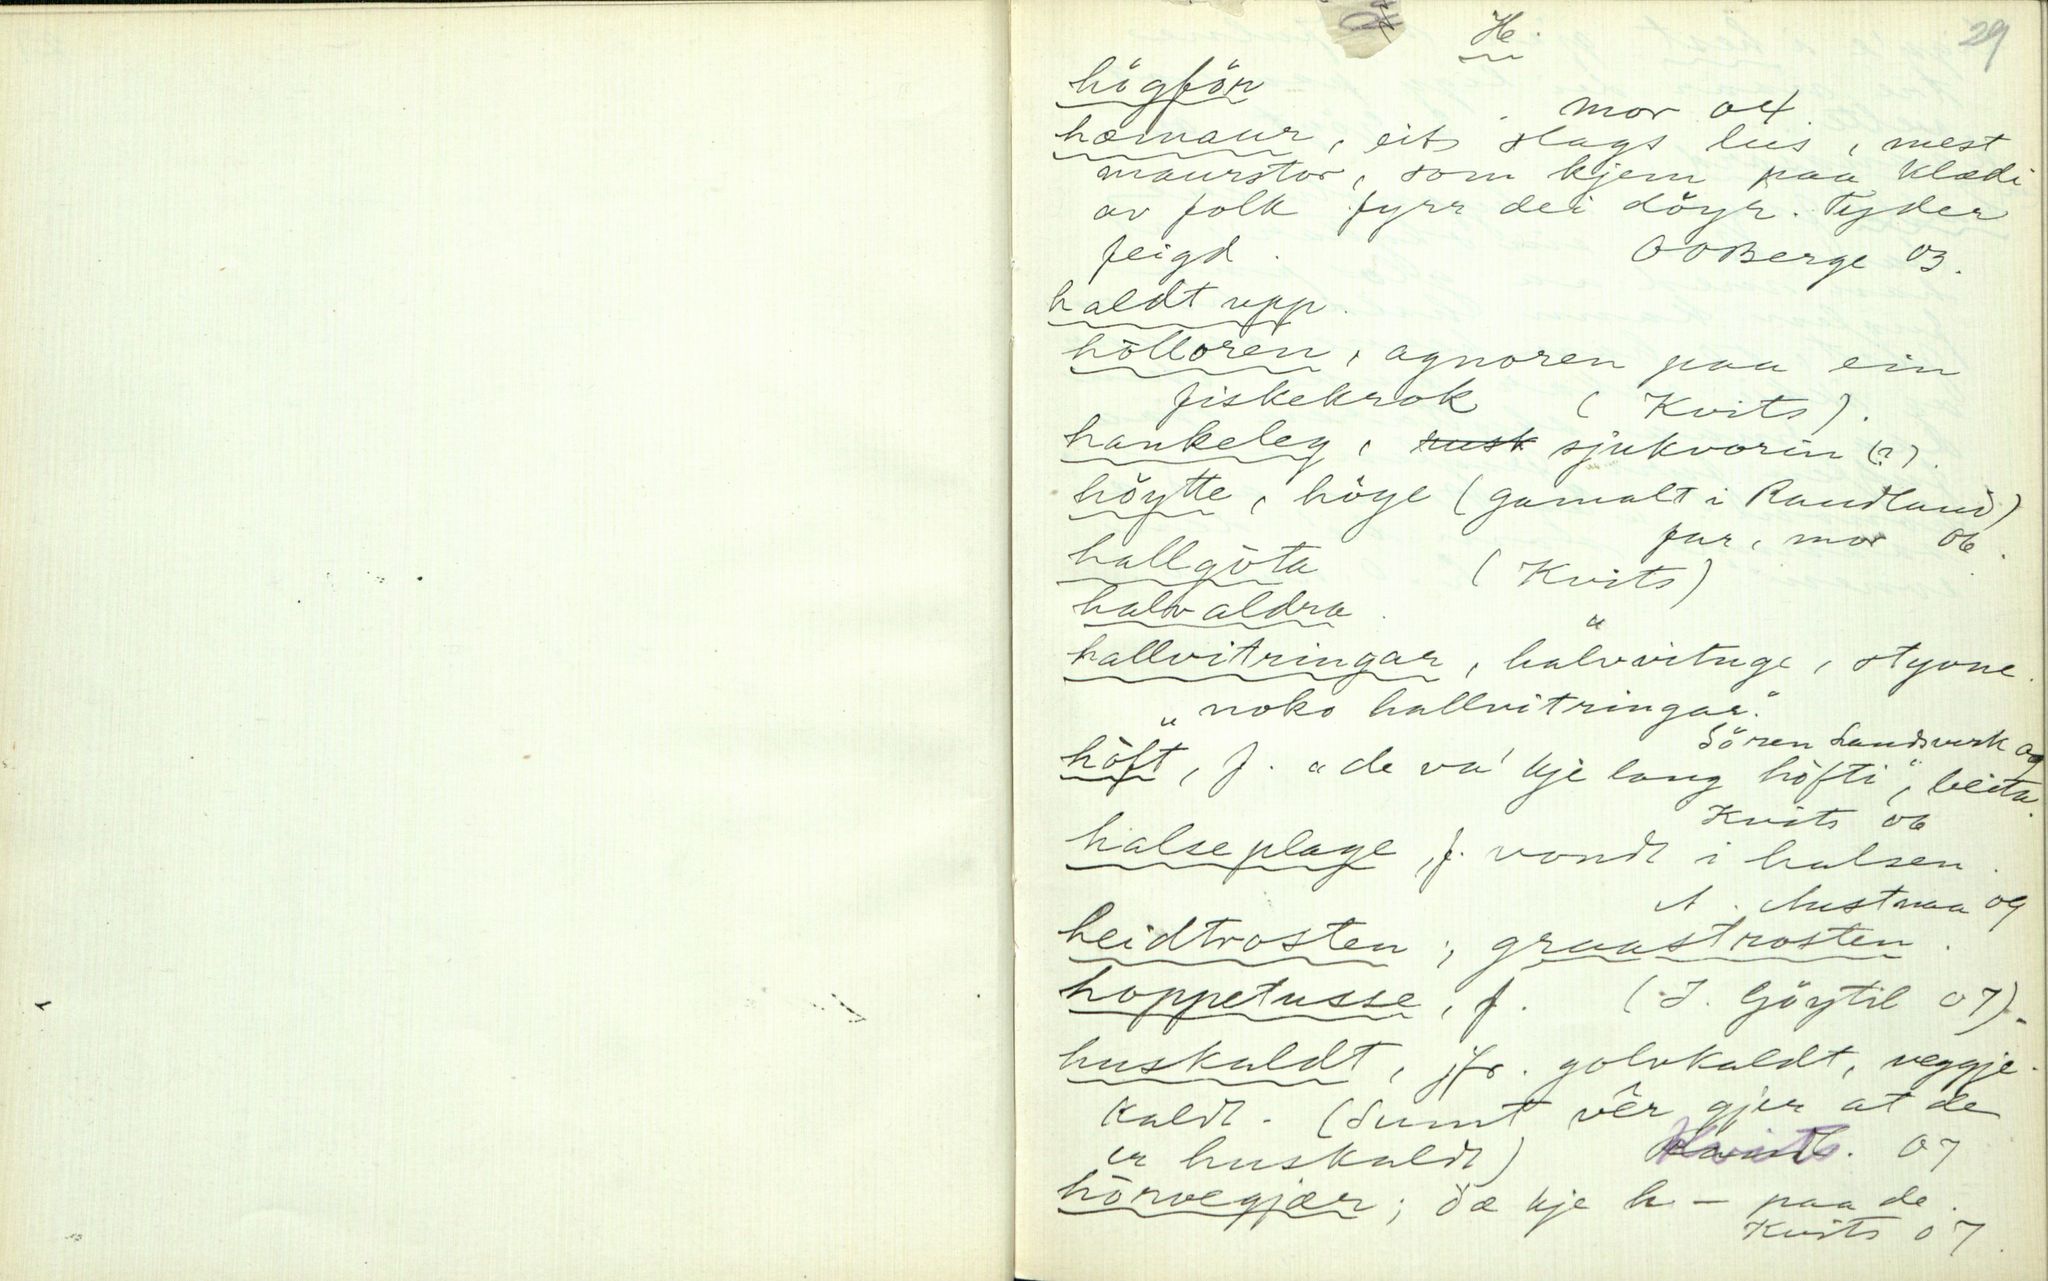 H.
29
högför
mor 04.
hæmaur, eit slags lus, mest
maurstor, som kjem paa klædi
av folk fyrr dei döyr. Tyder
feigd. OOBerge 03.
haldt upp.
hölloren, agnoren paa ein
fiskekrok (Kvits).
hankeleg, rusk sjukvorin (?).
höytte, höge (gamalt i Raudland)
far, mor 06.
hallgöta (Kvits)
halvaldra. "
hallvitringar, halvvituge, styvne.
"noko hallvitringar."
Sören Sandsverk 09
höft, f. "de va' kje lang höfti", beita.
Kvits 06
halseplage, f. vondt i halsen.
A. Austnaa 09
heidtrosten, graastrosten.
hoppetusse, f. (J. Göytil 07).
huskaldt, jfr. golvkaldt, veggje-
kaldt. (Sumt vêr gjer at de
er huskaldt) Kvits. 07
hörvegjær; dæ kje h- paa de.
Kvits 07.